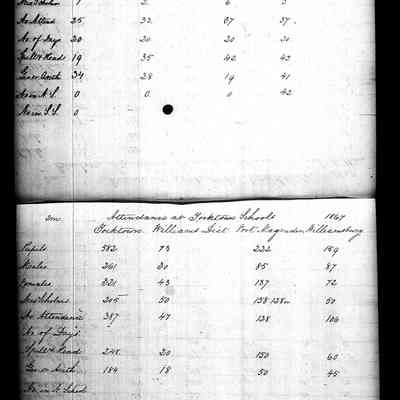 Av. Attend 25 32 67 37
No. of Days 20 20 20 20
Spell & Read 19 35 42 42
Geo or Arith 34 28 19 41
No in N. S. 0 0 0 42
No in S. S. 0
2m Attendance at Yorktown Schools 1867
Yorktown Williams Dist Fort Magruder Williamsburg
Pupils 582 73 222 159
Males 261 30 85 87
Females 221 43 137 72
205 50 138 128m 50
Av Attendance 387 47 138 106
No of Days
Spell & Read 248 20 150 60
Geo or Arith 184 18 50 45
No in N. School